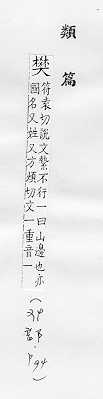 類篇
樊
符袁切說文鷙不行一曰山邊也亦
國名又姓又方煩切文一重音一